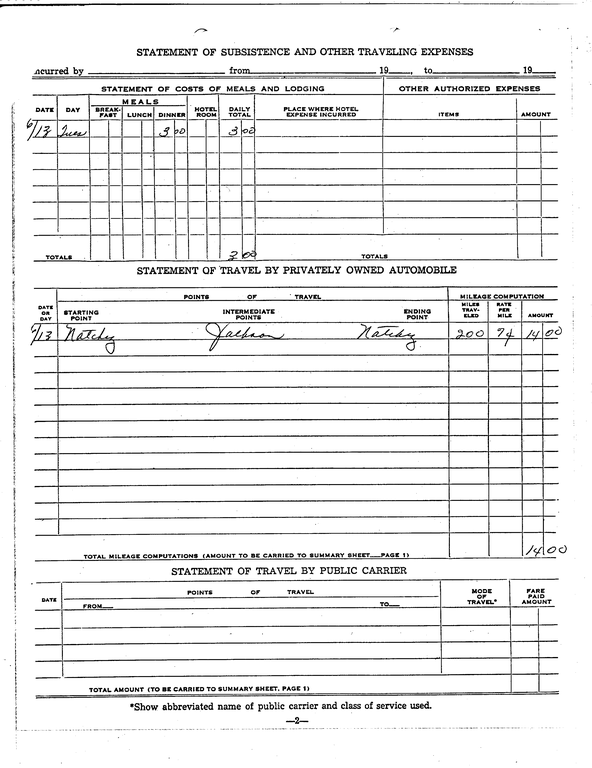 STATEMENT OF SUBSISTENCE AND OTHER TRAVELING EXPENSES
ncurred by from 19 , to 19
STATEMENT OF COSTS OF MEALS AND LODGING OTHER AUTHORIZED EXPENSES
DATE DAY MEALS HOTEL ROOM DAILY TOTAL PLACE WHERE HOTEL EXPENSE INCURRED ITEMS AMOUNT
BREAK-FAST LUNCH DINNER
6/13 Tues 3 00 3 00
TOTALS 3 00 TOTALS
STATEMENT OF TRAVEL BY PRIVATELY OWNED AUTOMOBILE
DATE OR DAY POINTS OF TRAVEL MILEAGE COMPUTATION
STARTING POINT INTERMEDIATE POINTS ENDING POINT MILES TRAV-ELED RATE PER MILE AMOUNT
6/13 Natchez Jackson Natchez 200 7¢ 14 00
TOTAL MILEAGE COMPUTATIONS (AMOUNT TO BE CARRIED TO SUMMARY SHEET—PAGE 1) 14 00
STATEMENT OF TRAVEL BY PUBLIC CARRIER
DATE POINTS OF TRAVEL MODE OF TRAVEL* FARE PAID AMOUNT
FROM— TO—
TOTAL AMOUNT (TO BE CARRIED TO SUMMARY SHEET. PAGE 1)
*Show abbreviated name of public carrier and class of service used.
—2—